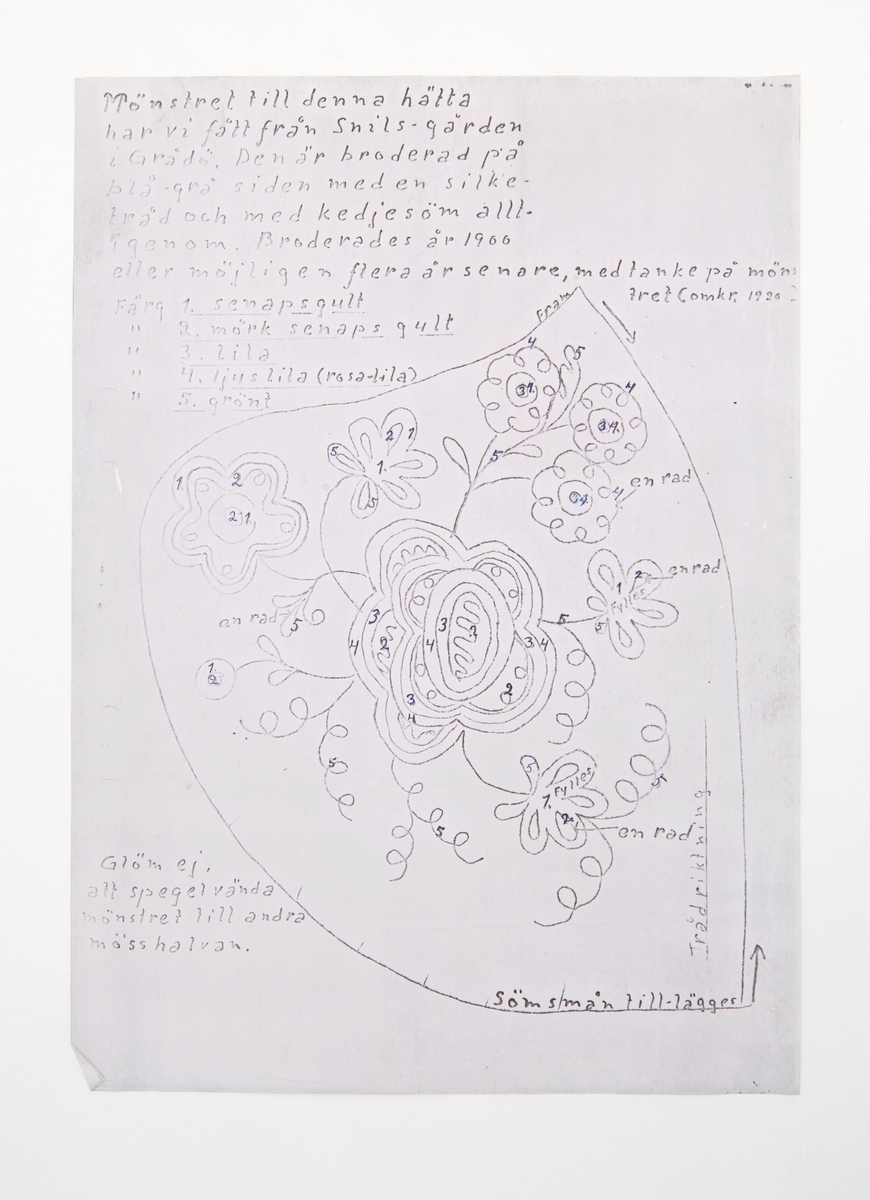 Mönstret till denna hätta
har vi fått från Snils-gården
i Grådö. Den är broderad på
blå-grå siden med en silke-
tråd och med kedjesöm allt-
igenom. Broderades år 1900
eller möjligen flera år senare, med tanke på möns
tret (omkr. 1920)
Färg 1. senapsgult
" 2. mörk senapsgult
" 3. lila
" 4. ljuslila (rosa-lila)
" 5. grönt
Fram
4
5
34.
4
34.
5
4.
4
en rad
2 1
5
1.
5
1.
2
2 1.
1
2
en rad
Fylles
5
5
en rad
5
3
4
2
4
3
2
3 4
2
3
4
1.
2
5
5
5
Fylles
1.
2.
en rad
5
Trådriktning
Glöm ej,
att spegelvända
mönstret till andra
mösshalvan.
Sömsmån till-lägges